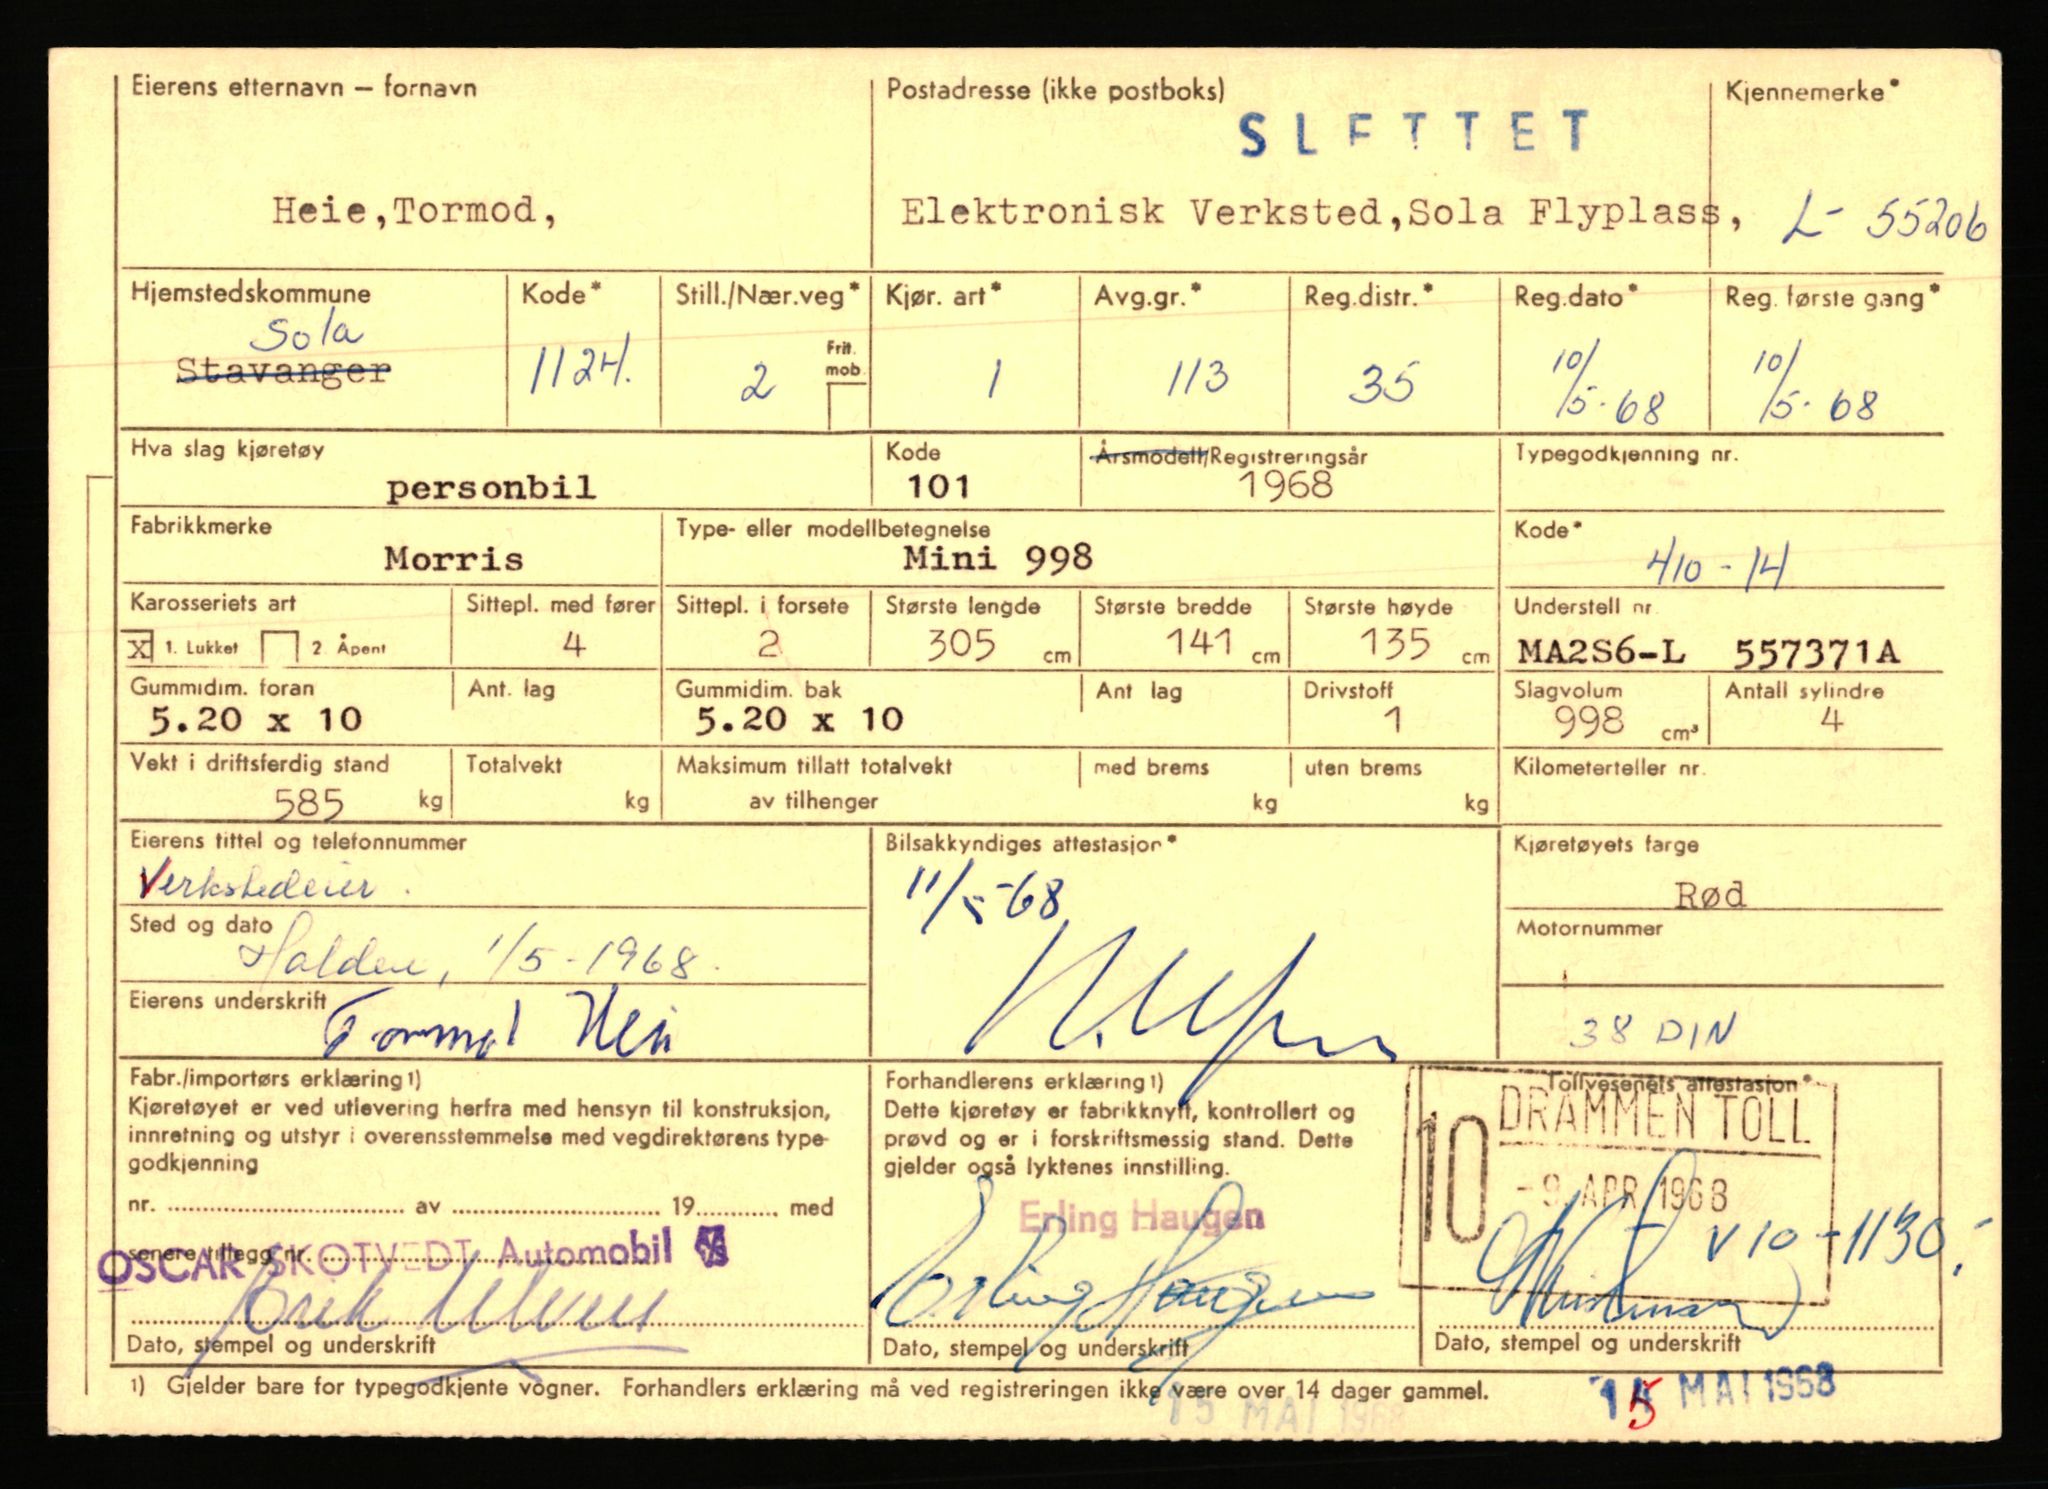 Eierens etternavn – fornavn
Postadresse (ikke postboks)
Kjennemerke*
SLETTET
Heie, Tormod,
Elektronisk Verksted, Sola Flyplass,
L- 55206
Hjemstedskommune
Kode*
Still./Nær.veg*
Kjør. art*
Avg.gr.*
Reg.distr.*
Reg.dato*
Reg. første gang*
Sola
Stavanger
1124.
2
Frit. mob.
1
113
35
10/5-68
10/5-68
Hva slag kjøretøy
Kode
Årsmodell/Registreringsår
Typegodkjenning nr.
personbil
101
1968
Fabrikkmerke
Type- eller modellbetegnelse
Kode*
Morris
Mini 998
410-14
Karosseriets art
Sittepl. med fører
Sittepl. i forsete
Største lengde
Største bredde
Største høyde
Understell nr.
X 1. Lukket 2. Åpent
4
2
305 cm
141 cm
135 cm
MA2S6-L 557371A
Gummidim. foran
Ant. lag
Gummidim. bak
Ant lag
Drivstoff
Slagvolum
Antall sylindre
5.20 x 10
5.20 x 10
1
998 cm³
4
Vekt i driftsferdig stand
Totalvekt
Maksimum tillatt totalvekt
med brems
uten brems
Kilometerteller nr.
585 kg
kg
av tilhenger
kg
kg
Eierens tittel og telefonnummer
Bilsakkyndiges attestasjon*
Kjøretøyets farge
Verkstedeier.
11/5-68
Rød
Sted og dato
Motornummer
Halden, 1/5-1968.
Eierens underskrift
Tormod Heie
38 DIN
Fabr./importørs erklæring 1)
Kjøretøyet er ved utlevering herfra med hensyn til konstruksjon,
innretning og utstyr i overensstemmelse med vegdirektørens type-
godkjenning
nr. av 19 med
senere tillegg nr.
OSCAR SKOTVEDT Automobil
Dato, stempel og underskrift
Forhandlerens erklæring 1)
Dette kjøretøy er fabrikknytt, kontrollert og
prøvd og er i forskriftsmessig stand. Dette
gjelder også lyktenes innstilling.
Erling Haugen
Erling Haugen
Dato, stempel og underskrift
Tollvesenets attestasjon*
DRAMMEN TOLL
10
-9. APR 1968
V 10-1130,-
Dato, stempel og underskrift
1) Gjelder bare for typegodkjente vogner. Forhandlers erklæring må ved registreringen ikke være over 14 dager gammel.
15 MAI 1968
15 MAI 1968